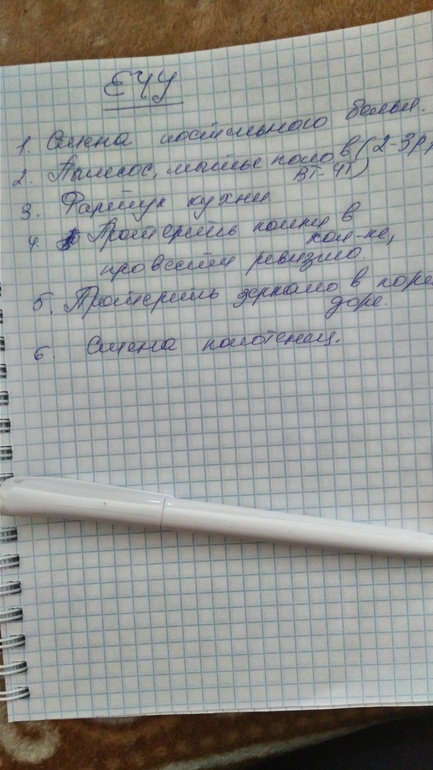 ЕЧУ
1. Смена постельного белья.
2. Пылесос, мытьё полов (2-3р,
ВТ-ЧТ)
3. Фартук кухни
4. Протереть полки в
хол-ке,
провести ревизию.
5. Протереть зеркало в кори
доре.
6. Смена полотенец.